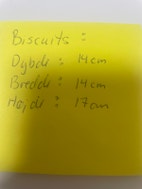 Biscuits :
Dybde : 14cm
Bredde : 14cm
Højde : 17cm